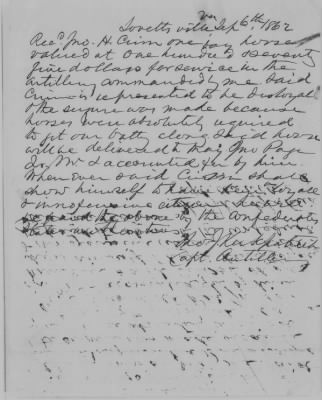 Lovettsville Va Sep 6th, 1862
Rec'd Jno. H. Crim one bay horse
valued at one hundred & seventy
five dollars for service in the
artillery commanded by me Said
Crim is represented to be disloyal
& the impressure was made because
horses were absolutely required
to fit our battery along Said horse
will be delivered to Maj Jno Page
Jr. & accounted for by him.
When ever said Crim shall
show himself to have been loyal
& inoffensive citizen he will
be paid the above by the Confederate
States authorities
Capt. Artillery